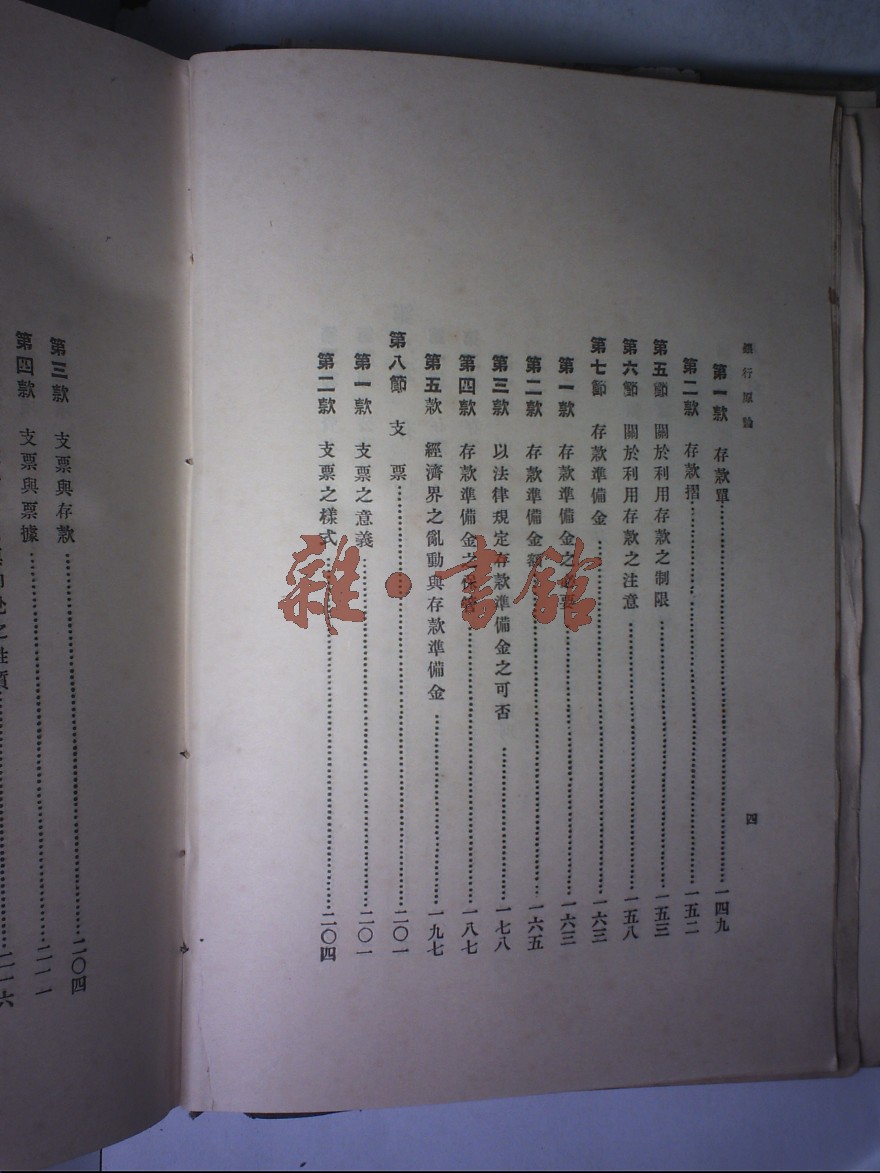 銀行原論
四
第一款 存款單 一四九
第二款 存款摺 一五二
第五節 關於利用存款之制限 一五三
第六節 關於利用存款之注意 一五八
第七節 存款準備金 一六三
第一款 存款準備金之必要 一六三
第二款 存款準備金額 一六五
第三款 以法律規定存款準備金之可否 一七八
第四款 存款準備金之保管 一八七
第五款 經濟界之亂動與存款準備金 一九七
第八節 支票 二〇一
第一款 支票之意義 二〇一
第二款 支票之樣式 二〇四
第三款 支票與存款 二〇四
第四款 支票與票據 二一一
之性質 二一六
雜·書館